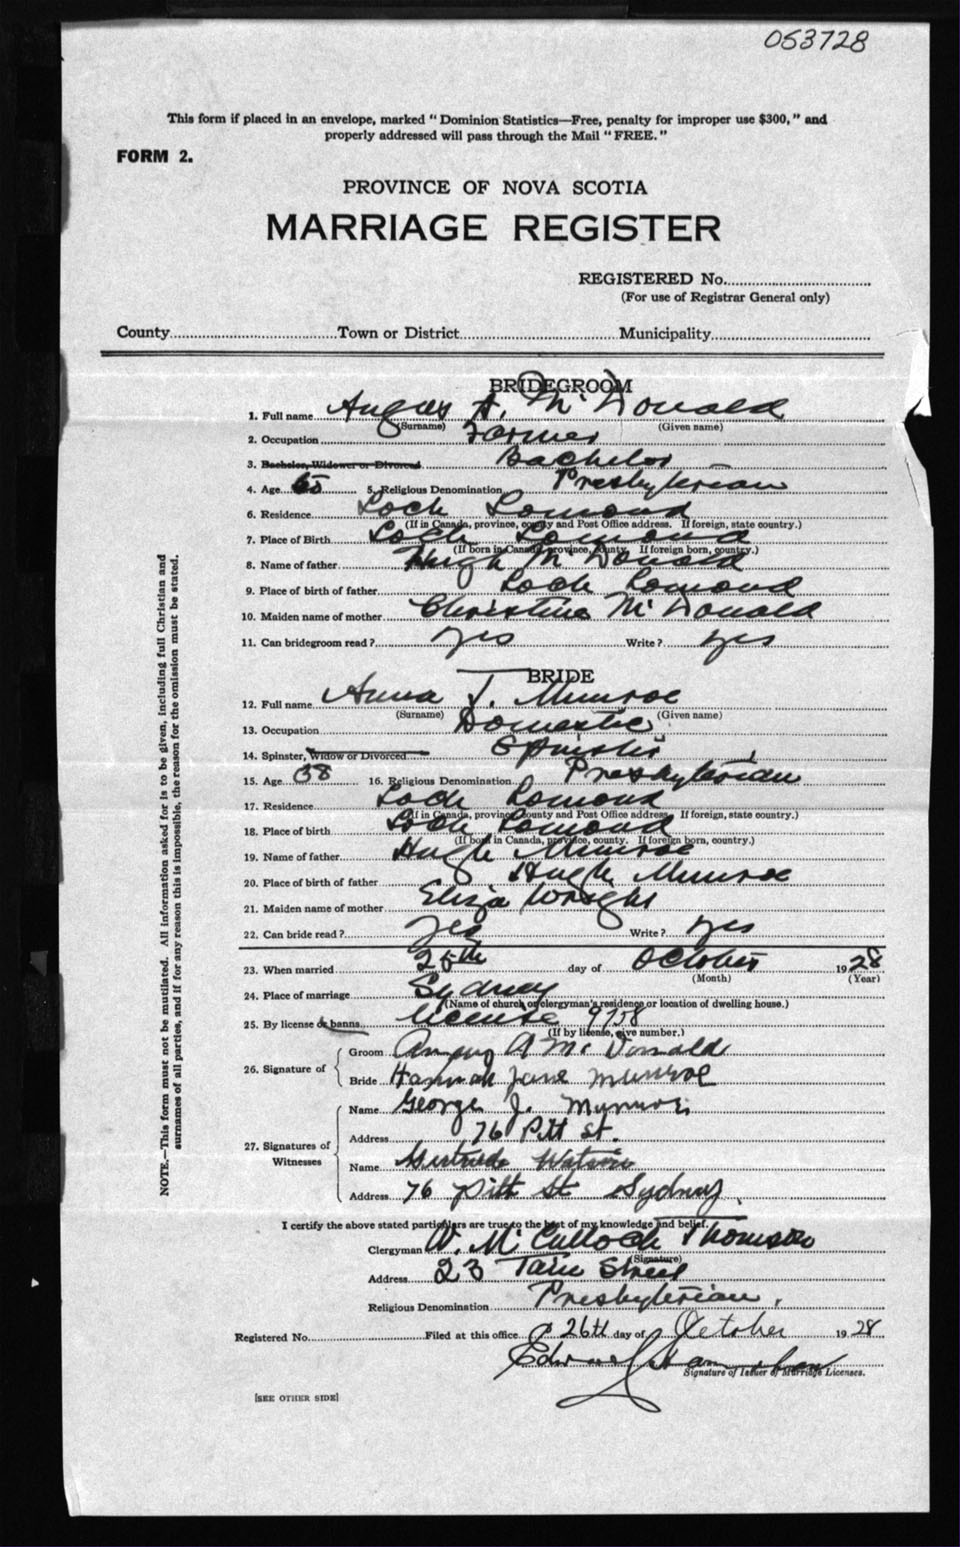 053728
This form if placed in an envelope, marked "Dominion Statistics—Free, penalty for improper use $300," and
properly addressed will pass through the Mail "FREE."
FORM 2.
PROVINCE OF NOVA SCOTIA
MARRIAGE REGISTER
REGISTERED No.
(For use of Registrar General only)
County Town or District Municipality
BRIDEGROOM
1. Full name Angus A. McDonald
(Surname) (Given name)
2. Occupation Farmer
3. Bachelor, Widower or Divorced Bachelor
4. Age 5. Religious Denomination Presbyterian
6. Residence Loch Lomond
(If in Canada, province, county and Post Office address. If foreign, state country.)
7. Place of Birth Loch Lomond
(If born in Canada, province, county. If foreign born, country.)
8. Name of father Hugh McDonald
9. Place of birth of father Loch Lomond
10. Maiden name of mother Christine McDonald
11. Can bridegroom read? yes Write? yes
BRIDE
12. Full name Anna J. Munroe
(Surname) (Given name)
13. Occupation Domestic
14. Spinster, Widow or Divorced Spinster
15. Age 38 16. Religious Denomination Presbyterian
17. Residence Loch Lomond
(If in Canada, province, county and Post Office address. If foreign, state country.)
18. Place of birth Loch Lomond
(If born in Canada, province, county. If foreign born, country.)
19. Name of father Hugh Munroe
20. Place of birth of father Hugh Munroe
21. Maiden name of mother Eliza Wright
22. Can bride read? yes Write? yes
23. When married 25th day of October 1928
(Month) (Year)
24. Place of marriage Sydney
(Name of church or clergyman's residence or location of dwelling house.)
25. By license or banns License 9758
(If by license, give number.)
26. Signature of Groom A McDonald
Bride Hannah Jane Munroe
27. Signatures of Witnesses
Name George J. Munroe
Address 76 Pitt St.
Name Gertrude Watson
Address 76 Pitt St Sydney.
I certify the above stated particulars are true to the best of my knowledge and belief.
Clergyman W. McCulloch Thomson
(Signature)
Address 23 Street
Religious Denomination Presbyterian.
Registered No. Filed at this office 26th day of October 1928
Signature of Issuer of Marriage Licenses.
[SEE OTHER SIDE]
NOTE.—This form must not be mutilated. All information asked for is to be given, including full Christian and
surnames of all parties, and if for any reason this is impossible, the reason for the omission must be stated.